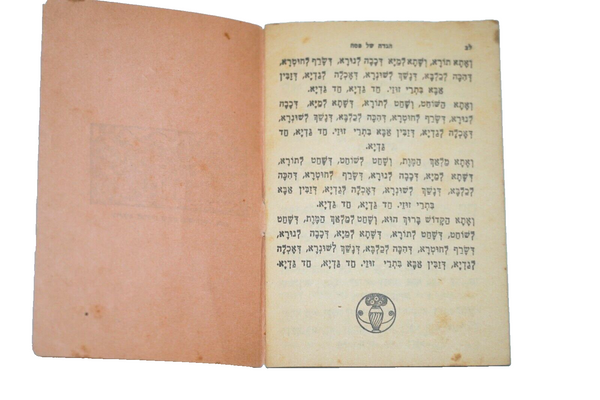 לב הגדה של פסח
וְאָתָא תוֹרָא, וְשָׁתָא לְמַיָּא דְּכָבָה לְנוּרָא, דְּשָׂרַף לְחוּטְרָא,
דְּהִכָּה לְכַלְבָּא, דְּנָשַׁךְ לְשׁוּנְרָא, דְּאָכְלָה לְגַדְיָא, דְּזַבִּין
אַבָּא בִּתְרֵי זוּזֵי. חַד גַּדְיָא, חַד גַּדְיָא.
וְאָתָא הַשּׁוֹחֵט, וְשָׁחַט לְתוֹרָא, דְּשָׁתָא לְמַיָּא, דְּכָבָה
לְנוּרָא, דְּשָׂרַף לְחוּטְרָא, דְּהִכָּה לְכַלְבָּא, דְּנָשַׁךְ לְשׁוּנְרָא,
דְּאָכְלָה לְגַדְיָא, דְּזַבִּין אַבָּא בִּתְרֵי זוּזֵי. חַד גַּדְיָא, חַד
גַּדְיָא.
וְאָתָא מַלְאַךְ הַמָּוֶת, וְשָׁחַט לְשׁוֹחֵט, דְּשָׁחַט לְתוֹרָא,
דְּשָׁתָא לְמַיָּא, דְּכָבָה לְנוּרָא, דְּשָׂרַף לְחוּטְרָא, דְּהִכָּה
לְכַלְבָּא, דְּנָשַׁךְ לְשׁוּנְרָא, דְּאָכְלָה לְגַדְיָא, דְּזַבִּין אַבָּא
בִּתְרֵי זוּזֵי. חַד גַּדְיָא, חַד גַּדְיָא.
וְאָתָא הַקָּדוֹשׁ בָּרוּךְ הוּא, וְשָׁחַט לְמַלְאַךְ הַמָּוֶת, דְּשָׁחַט
לְשׁוֹחֵט, דְּשָׁחַט לְתוֹרָא, דְּשָׁתָא לְמַיָּא, דְּכָבָה לְנוּרָא,
דְּשָׂרַף לְחוּטְרָא, דְּהִכָּה לְכַלְבָּא, דְּנָשַׁךְ לְשׁוּנְרָא, דְּאָכְלָה
לְגַדְיָא, דְּזַבִּין אַבָּא בִּתְרֵי זוּזֵי. חַד גַּדְיָא, חַד גַּדְיָא.